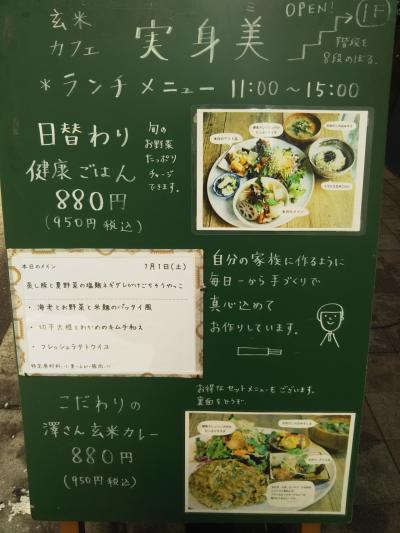 OPEN!
1F
階段を
8段のぼる。
玄米
カフェ
実身美
*ランチメニュー 11:00~15:00
日替わり
健康ごはん
880円
(950円税込)
旬の
お野菜
たっぷり
チャージ
できます。
本日のメイン
7月1日(土)
蒸し豚と夏野菜の塩麹ネギダレがけごちそうやっこ
・海老とお野菜と米麺のパッタイ風
・切干大根とわかめのキムチ和え
・フレッシュラタトゥイユ
自分の家族に作るように
毎日一から手づくりで
真心込めて
お作りしています。
お得なセットメニューもございます。
裏面をどうぞ。
こだわりの
澤さん玄米カレー
880円
(950円税込)